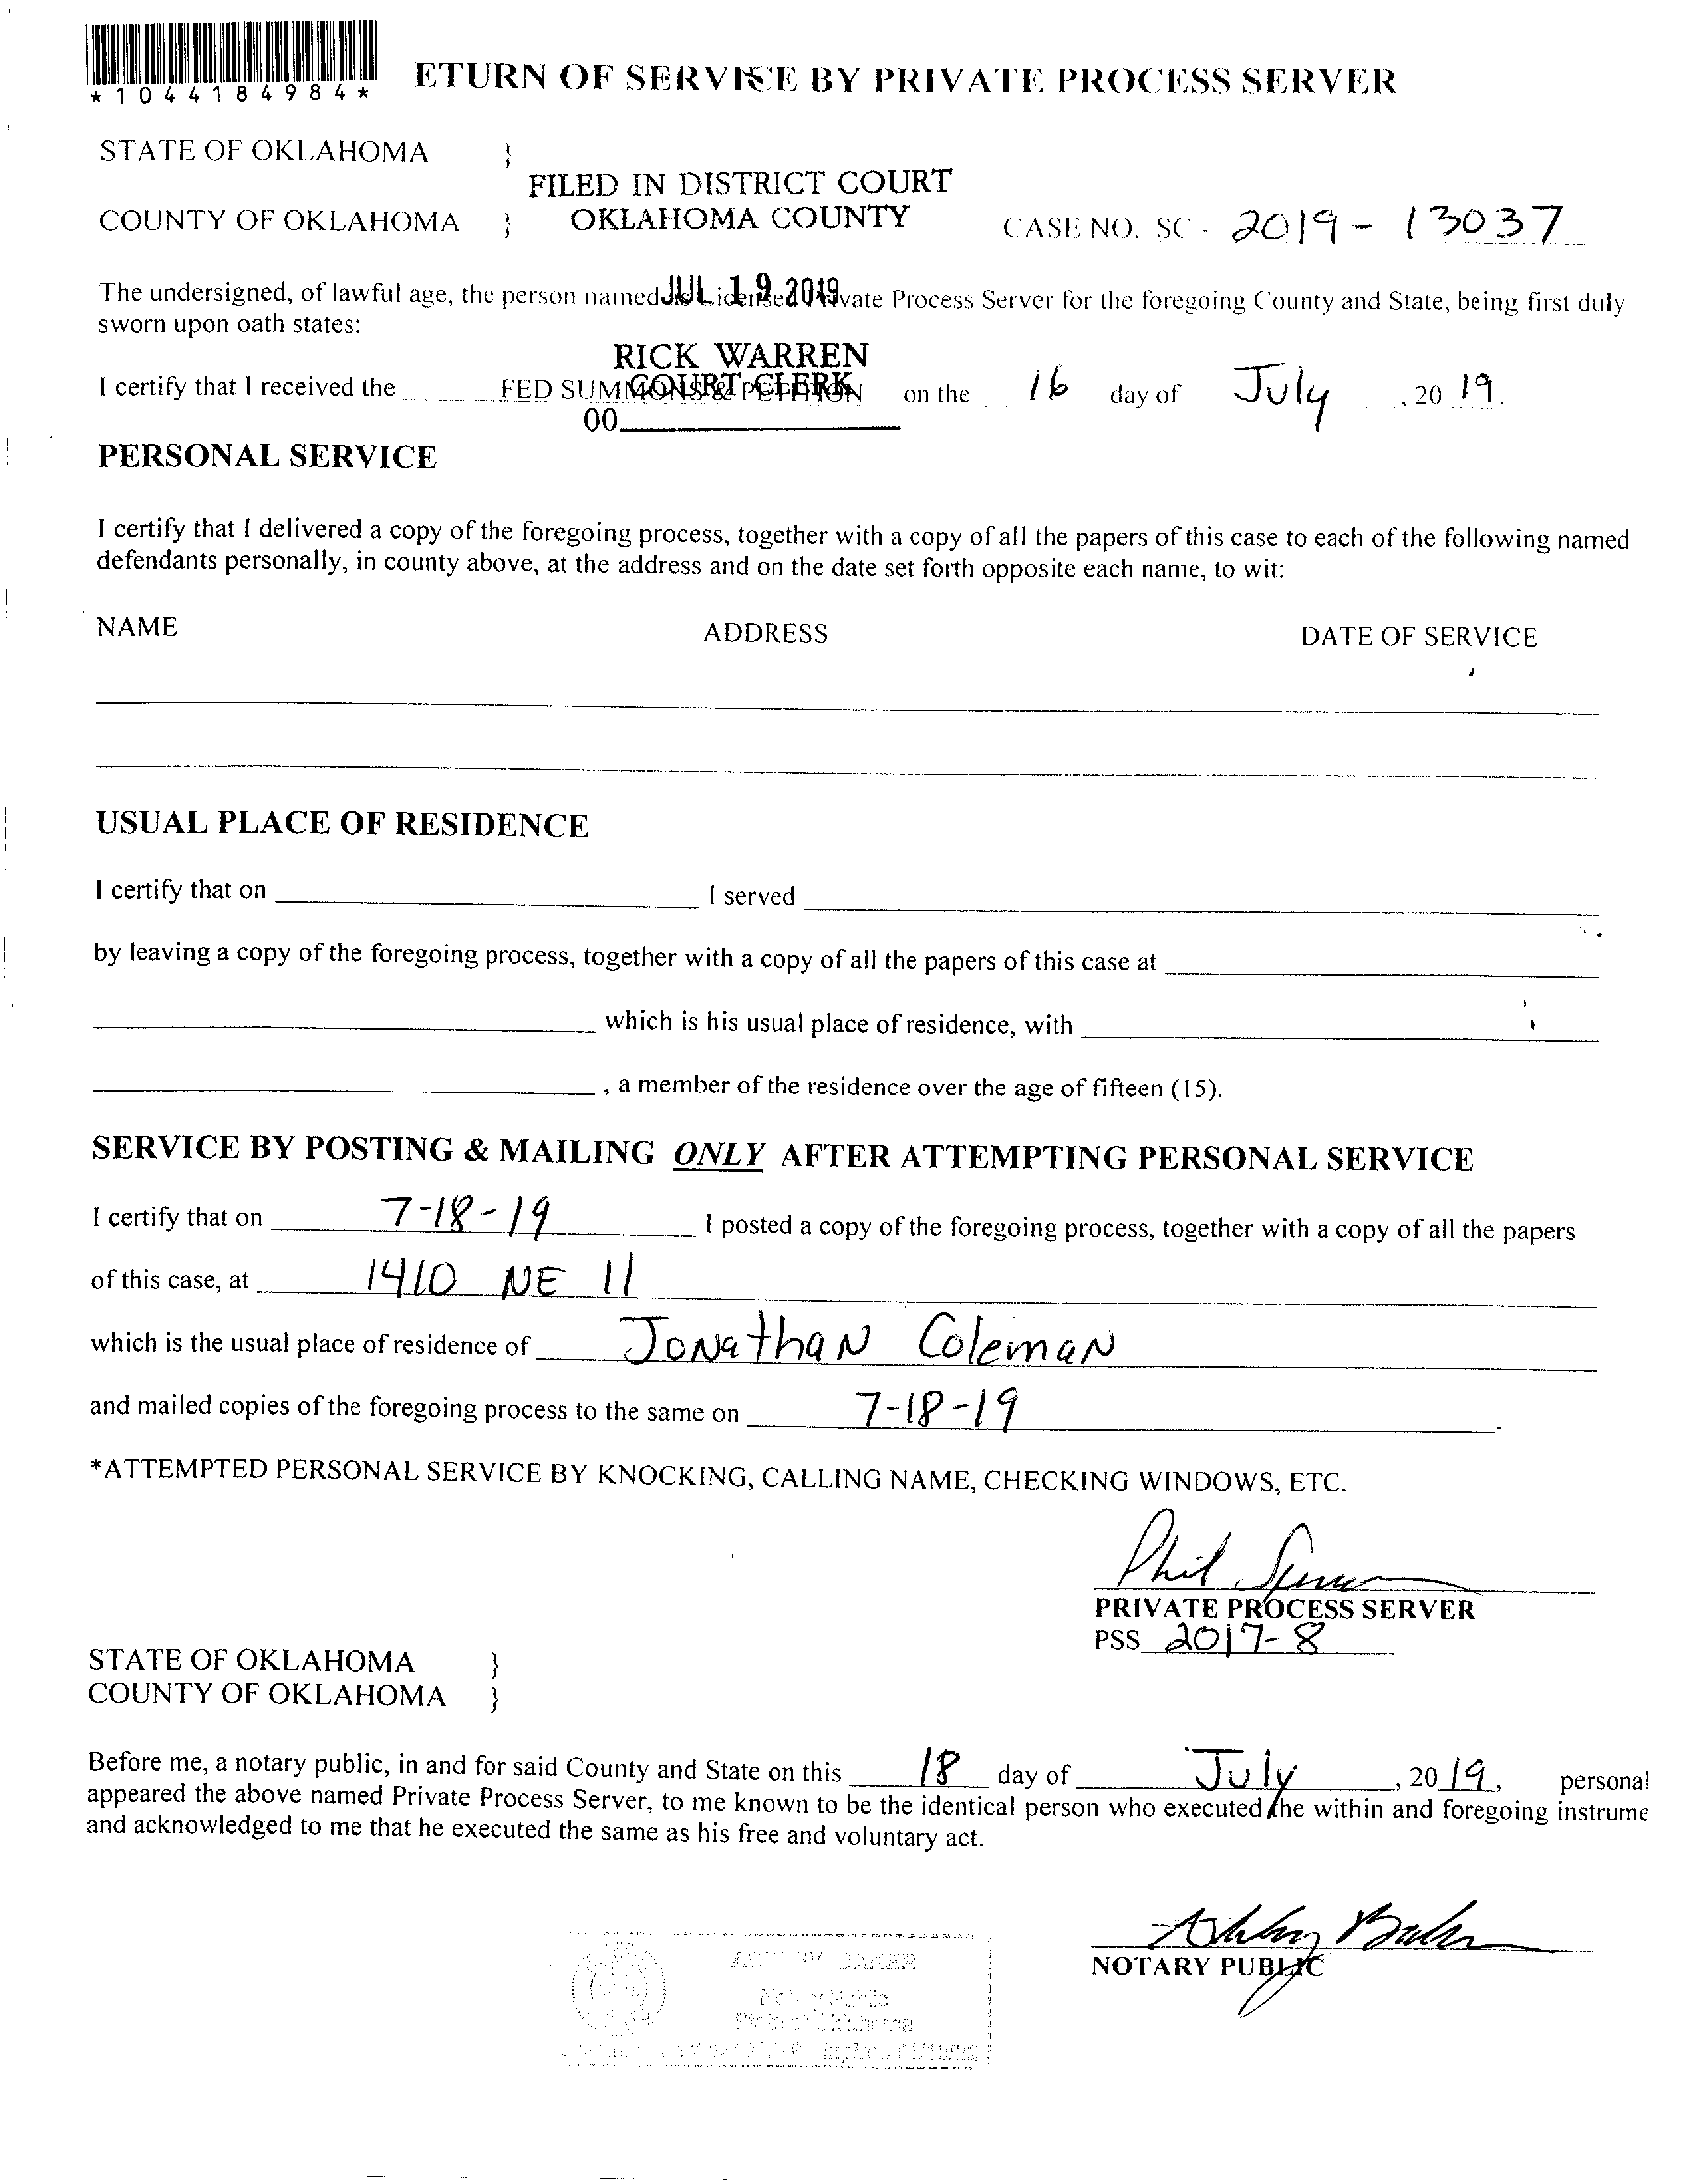 *1044184984*
ETURN OF SERVICE BY PRIVATE PROCESS SERVER
STATE OF OKLAHOMA }
FILED IN DISTRICT COURT
COUNTY OF OKLAHOMA } OKLAHOMA COUNTY CASE NO. SC - 2019 - 13037
The undersigned, of lawful age, the person named JUL 19 2019 Licensed Private Process Server for the foregoing County and State, being first duly
sworn upon oath states:
RICK WARREN
COURT CLERK
I certify that I received the FED SUMMONS & PETITION on the 16 day of July, 20 19.
00
PERSONAL SERVICE
I certify that I delivered a copy of the foregoing process, together with a copy of all the papers of this case to each of the following named
defendants personally, in county above, at the address and on the date set forth opposite each name, to wit:
NAME ADDRESS DATE OF SERVICE
USUAL PLACE OF RESIDENCE
I certify that on I served
by leaving a copy of the foregoing process, together with a copy of all the papers of this case at
which is his usual place of residence, with
, a member of the residence over the age of fifteen (15).
SERVICE BY POSTING & MAILING ONLY AFTER ATTEMPTING PERSONAL SERVICE
I certify that on 7-18-19 I posted a copy of the foregoing process, together with a copy of all the papers
of this case, at 1410 NE 11
which is the usual place of residence of Jonathan Coleman
and mailed copies of the foregoing process to the same on 7-18-19.
*ATTEMPTED PERSONAL SERVICE BY KNOCKING, CALLING NAME, CHECKING WINDOWS, ETC.
Phil
PRIVATE PROCESS SERVER
PSS 2017-8
STATE OF OKLAHOMA }
COUNTY OF OKLAHOMA }
Before me, a notary public, in and for said County and State on this 18 day of July, 20 19, personal
appeared the above named Private Process Server, to me known to be the identical person who executed the within and foregoing instrume
and acknowledged to me that he executed the same as his free and voluntary act.
Ashley Baker
NOTARY PUBLIC